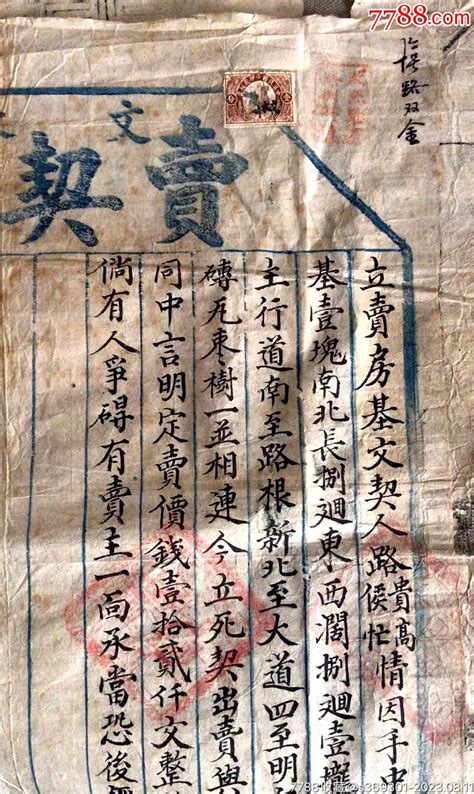 7788.com
路双金
文
賣契
立賣房基文契人路貴高侯忙情因手中
基壹塊南北長捌廻東西濶捌廻壹
主行道南至路根新北至大道四至明
磚瓦枣樹一並相連今立死契出賣與
同中言明定賣價錢壹拾貳仟文整
倘有人爭碍有賣主一面承當恐後
7788收藏@s369301-2023.0811